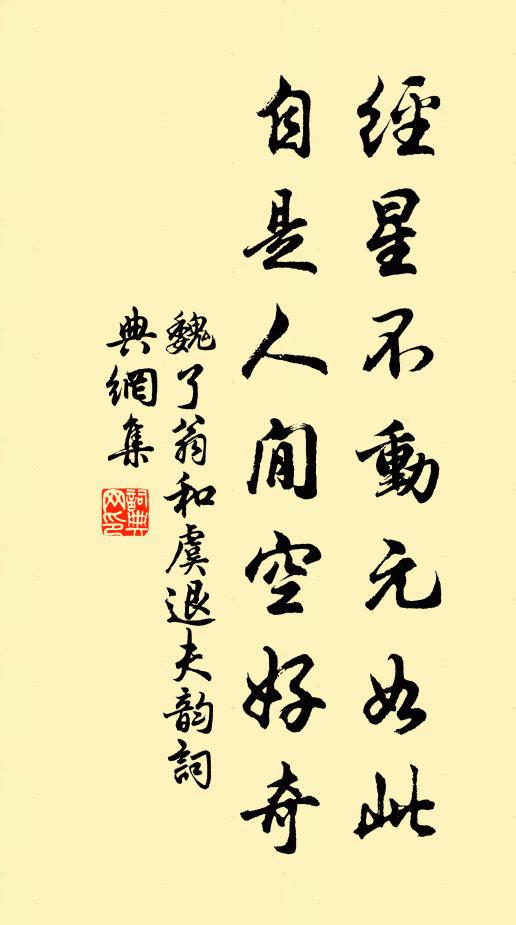 經星不動元如此
自是人間空好奇
魏了翁和虞退夫韵詞
典網集
詞典网印